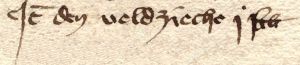 It den veldzieche j